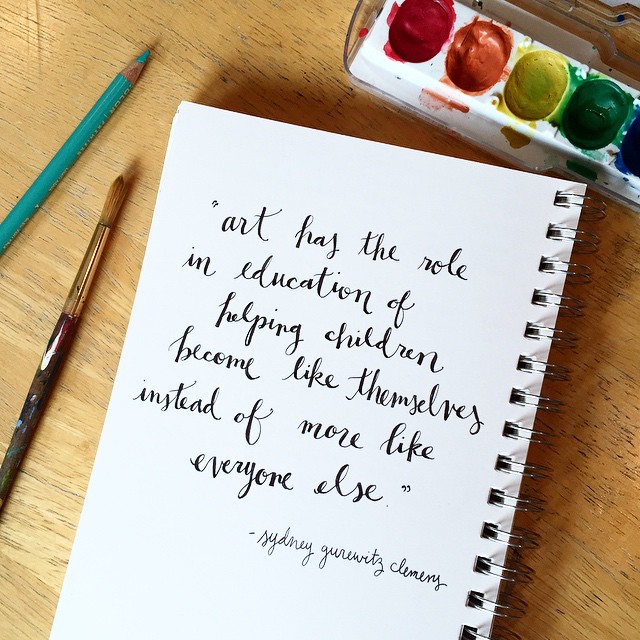 "art has the role
in education of
helping children
become like themselves
instead of more like
everyone else."
- sydney gurewitz clemens